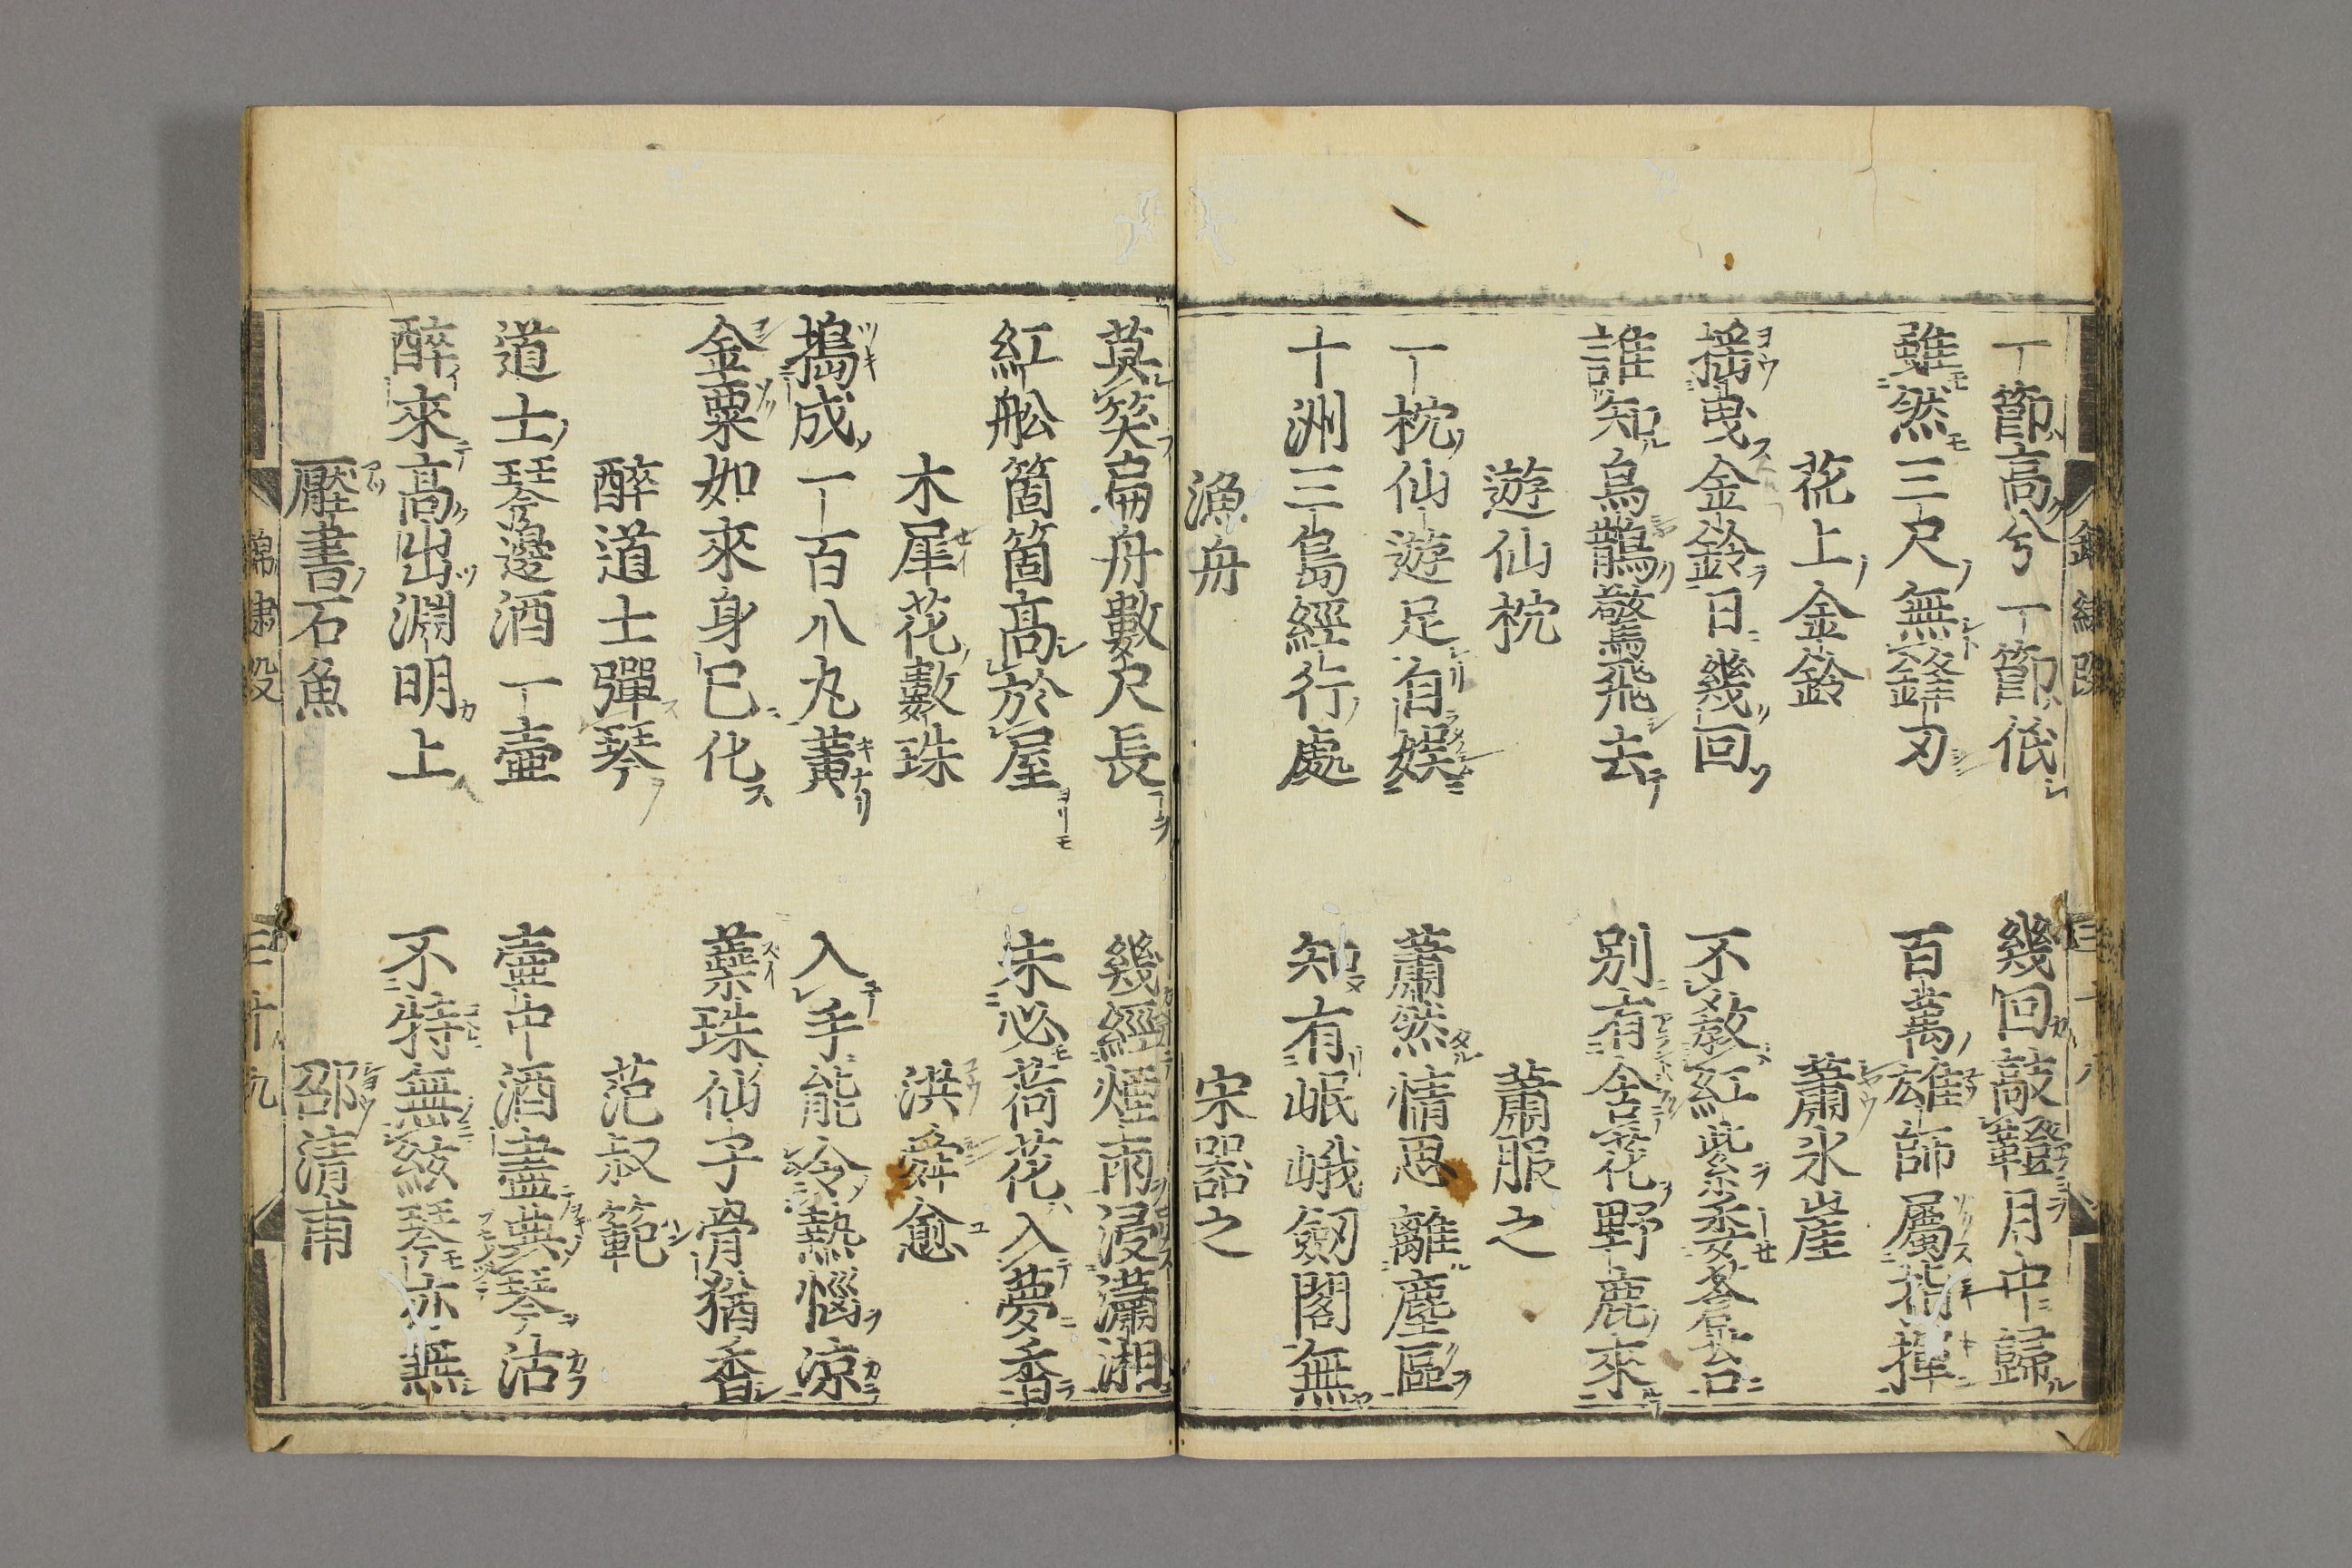 一節高兮一節低 幾回敲鞳月中歸
雖然三尺無鋒刃 百萬雄師屬指揮
花上金鈴 蕭氷崖
搖曳金鈴日幾回 不教紅紫委蒼苔
誰知烏鵲驚飛去 別有含花野鹿來
遊仙枕 蕭服之
一枕仙遊足自娯 蕭然情思離塵區
十洲三島經行處 知有岷峨劒閣無
漁舟 宋器之
莫笑扁舟數尺長 幾經煙雨浸瀟湘
紅舩箇箇高於屋 未必荷花入夢香
木犀花數珠 洪舜愈
搗成一百八丸黄 入手能令熱惱涼
金粟如來身已化 蘂珠仙子骨猶香
醉道士彈琴 范叔範
道士琴邊酒一壷 壷中酒盡典琴沽
醉來高出淵明上 不特無絃琴亦無
壓書石魚 邵清甫
錦繍段
三十九